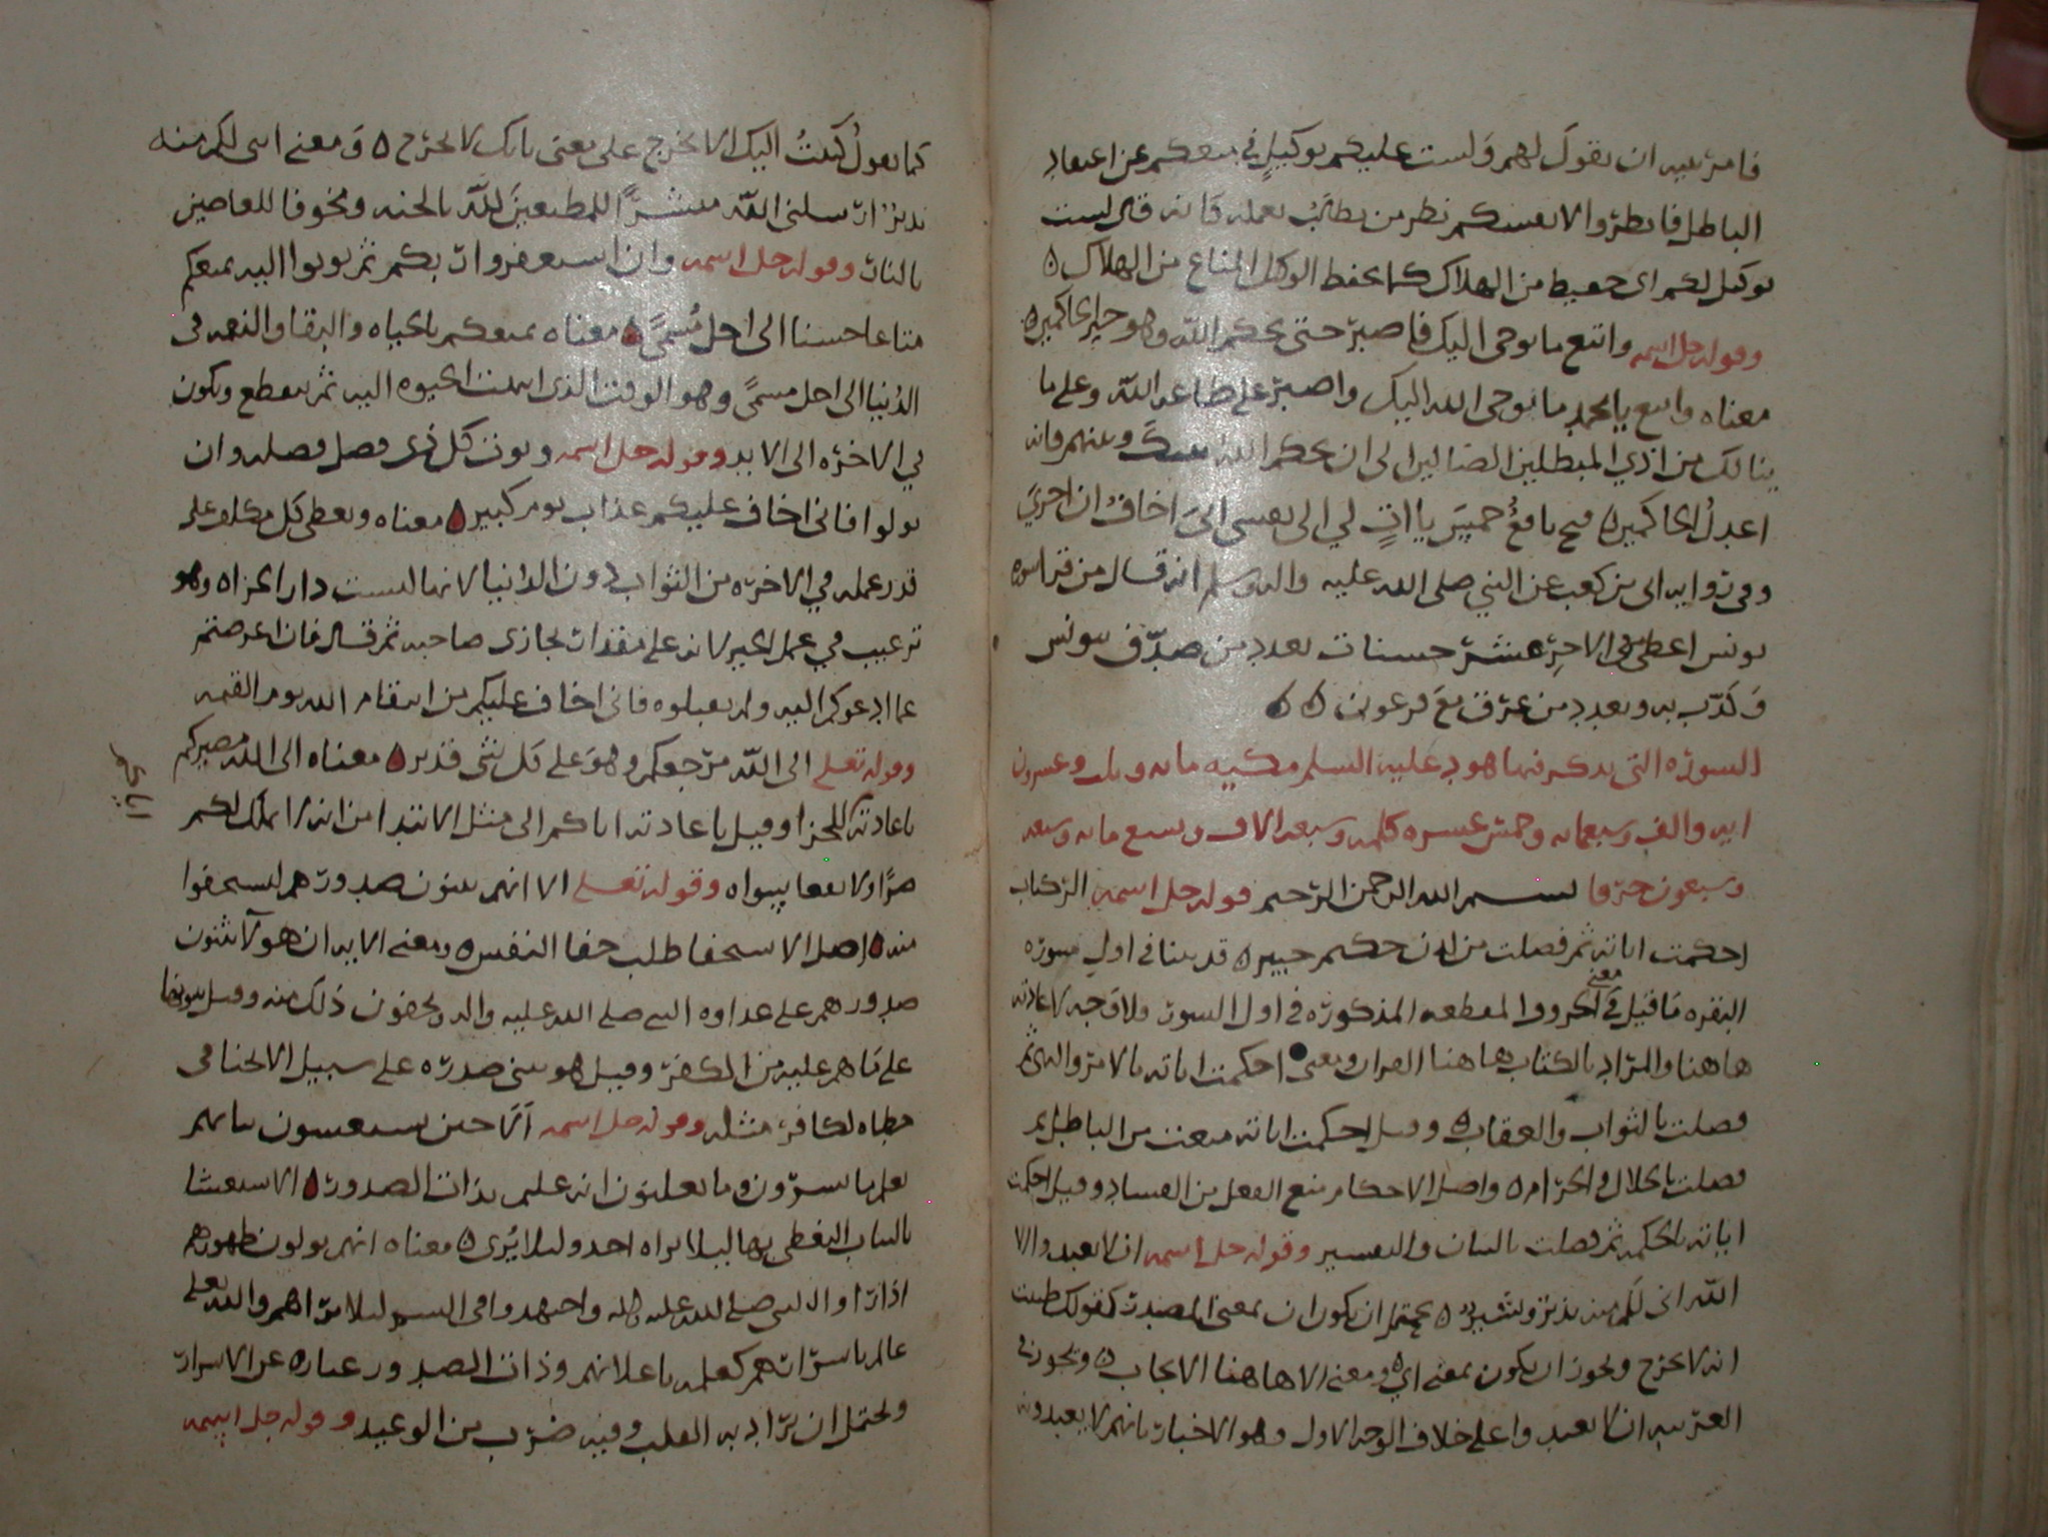 فامر نبيه ان يقول لهم ولست عليكم بوكيل في منعكم عن اعتقاد
الباطل فانظروا لانفسكم نظر من يطالب بعمله فانه قال لست
بوكيل لكم اي حفيظ من الهلاك كما يحفظ الوكيل المتاع من الهلاك ه
وقوله جل اسمه واتبع ما يوحى اليك فاصبر حتى يحكم الله وهو خير الحاكمين ه
معناه واتبع يا محمد ما يوحى الله اليك واصبر على طاعة الله وعلى ما
ينالك من اذي المبطلين الضالين الى ان يحكم الله بينك وبينهم فانه
اعدل الحاكمين ه فتح نافع خمس يااات لي الى نفسي اني اخاف ان اجري
وفي رواية ابي بن كعب عن النبي صلى الله عليه واله وسلم انه قال من قرا سوره
يونس اعطي من الاجر عشر حسنات بعدد من صدق بيونس
وكذب به وبعدد من غرق مع فرعون ه ه
السوره التي يذكر فيها هود عليه السلم مكيه مايه وثلث وعشرون
ايه والف وسبعمايه وخمس عشره كلمه وسبعه الاف وتسع مايه وسبعه
وسبعون حرفا بسم الله الرحمن الرحيم قوله جل اسمه الر كتاب
احكمت اياته ثم فصلت من لدن حكيم خبير ه قد بينا في اول سوره
البقره ما قيل في معنى الحروف المقطعه المذكوره في اول السور ولا وجه لاعادته
هاهنا والمراد بالكتاب هاهنا القران ومعنى احكمت اياته بالامر والنهي ثم
فصلت بالثواب والعقاب ه وقيل احكمت اياته منعت من الباطل ثم
فصلت بالحلال والحرام ه واصل الاحكام منع الفعل من الفساد وقيل احكمت
اياته بالحكمه ثم فصلت بالبيان والتفسير وقوله جل اسمه ان لا تعبدوا الا
الله اني لكم منه نذير وبشير ه يحتمل ان يكون ان بمعنى المصدر كقولك كتبت
انه لا تخرج ويجوز ان يكون بمعنى اي ه ومعنى الا هاهنا الايجاب ه ويجوز في
العربيه ان لا تعبدوا على خلاف الوجه الاول وهو الاخبار بانهم لا يعبدون
كما تقول كتبت اليك الا تخرج على معنى بانك لا تخرج ه ومعنى انني لكم منه
نذير ارسلني الله مبشرا للمطيعين لله بالجنه ومخوفا للعاصين
بالنار وقوله جل اسمه وان استغفروا ربكم ثم توبوا اليه يمتعكم
متاعا حسنا الى اجل مسمى ه معناه يمتعكم بالحياه والبقا والنعمه في
الدنيا الى اجل مسمى وهو الوقت الذي انتهت الحيوه اليه ثم تنقطع ويكون
في الاخره الى الابد وقوله جل اسمه ويوت كل ذي فضل فضله وان
تولوا فاني اخاف عليكم عذاب يوم كبير ه معناه ويعطى كل مكلف على
قدر عمله في الاخره من الثواب دون الدنيا لانها ليست دار الجزاه وهو
ترغيب في عمل الخير لانه على مقدار يجازى صاحبه ثم قال فان اعرضتم
عما ادعوكم اليه ولم تقبلوه فاني اخاف عليكم من انتقام الله يوم القيمه
وقوله تعلى الى الله مرجعكم وهو على كل شى قدير ه معناه الى الله مصيركم
اياكم
باعادته للجزا وقيل باعادته اياكم الى مثل الابتدا من انه لا يملك لكم
ضرا ولا نفعا سواه وقوله تعلى الا انهم يثنون صدورهم ليستخفوا
منه ه اصل الاستخفا طلب خفا النفس ه ومعنى الايه ان هولا يثنون
صدورهم على عداوه النبي صلى الله عليه واله يخفون ذلك منه وقيل
على ما هم عليه من الكفر وقيل هو يثني صدره على سبيل الانحنا في
لكافر مثله وقوله جل اسمه الا حين يستغشون ثيابهم
يعلم ما يسرون وما يعلنون انه عليم بذات الصدور ه الاستغشا
بالثياب التغطي بها ليلا يراه احد وليلا يرى ه معناه انهم يولون ظهورهم
اذا راوا النبي صلى الله عليه واله واجتهدوا في الستر ليلا يراهم والله تعلى
عالم باسرارهم كعلمه باعلانهم وذات الصدور عباره عن الاسرار
ويحتمل ان يراد به القلب وفيه ضرب من الوعيد وقوله جل اسمه